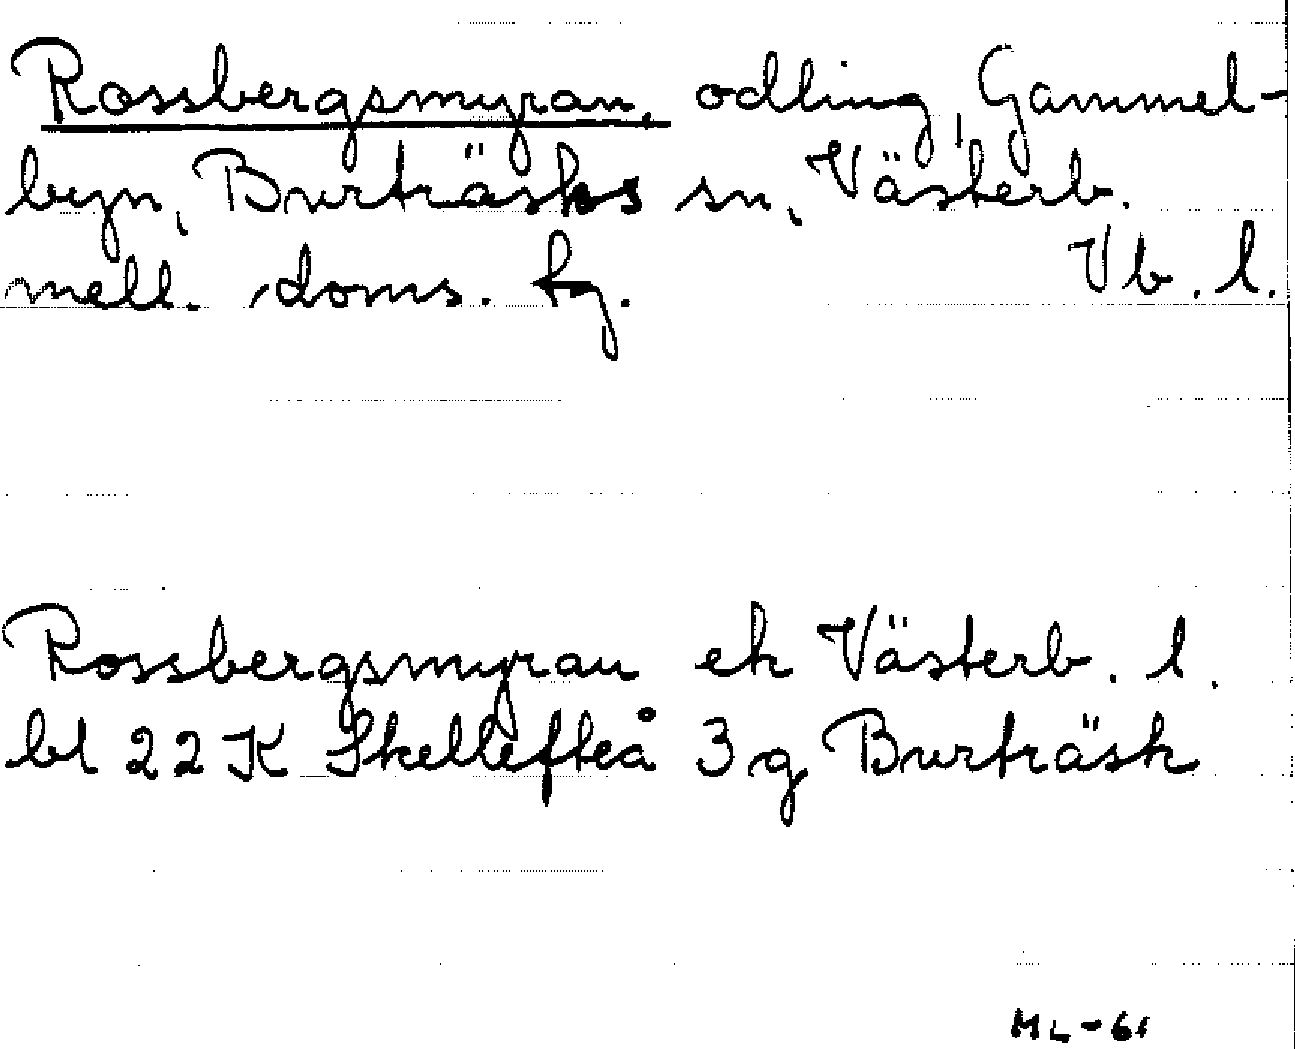 Rossbergsmyran, odling, Gammel-
byn, Burträsks sn, Västerb.
mell. doms. tg. Vb. l.
Rossbergsmyran ek Västerb. l.
bl 22 K Skellefteå 3 g Burträsk
ML-61